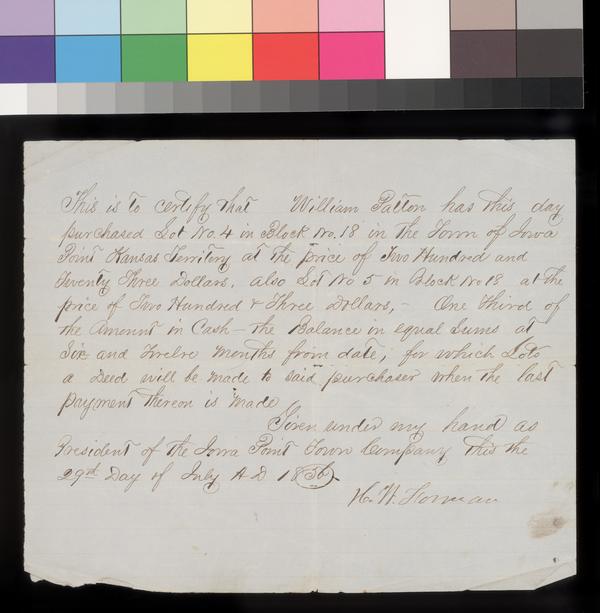 This is to certify that William Patton has this day
purchased Lot No. 4 in Block No. 18 in the Town of Iowa
Point Kansas Territory at the price of Two Hundred and
Seventy Three Dollars, also Lot No 5 in Block No 18 at the
price of Two Hundred & Three Dollars, - One third of
the Amount in Cash - the Balance in equal Sums at
Six and Twelve Months from date, for which Lots
a Deed will be made to said purchaser when the last
payment thereon is made
Given under my hand as
President of the Iowa Point Town Company this the
29th Day of July A D 1856
H. W. Forman